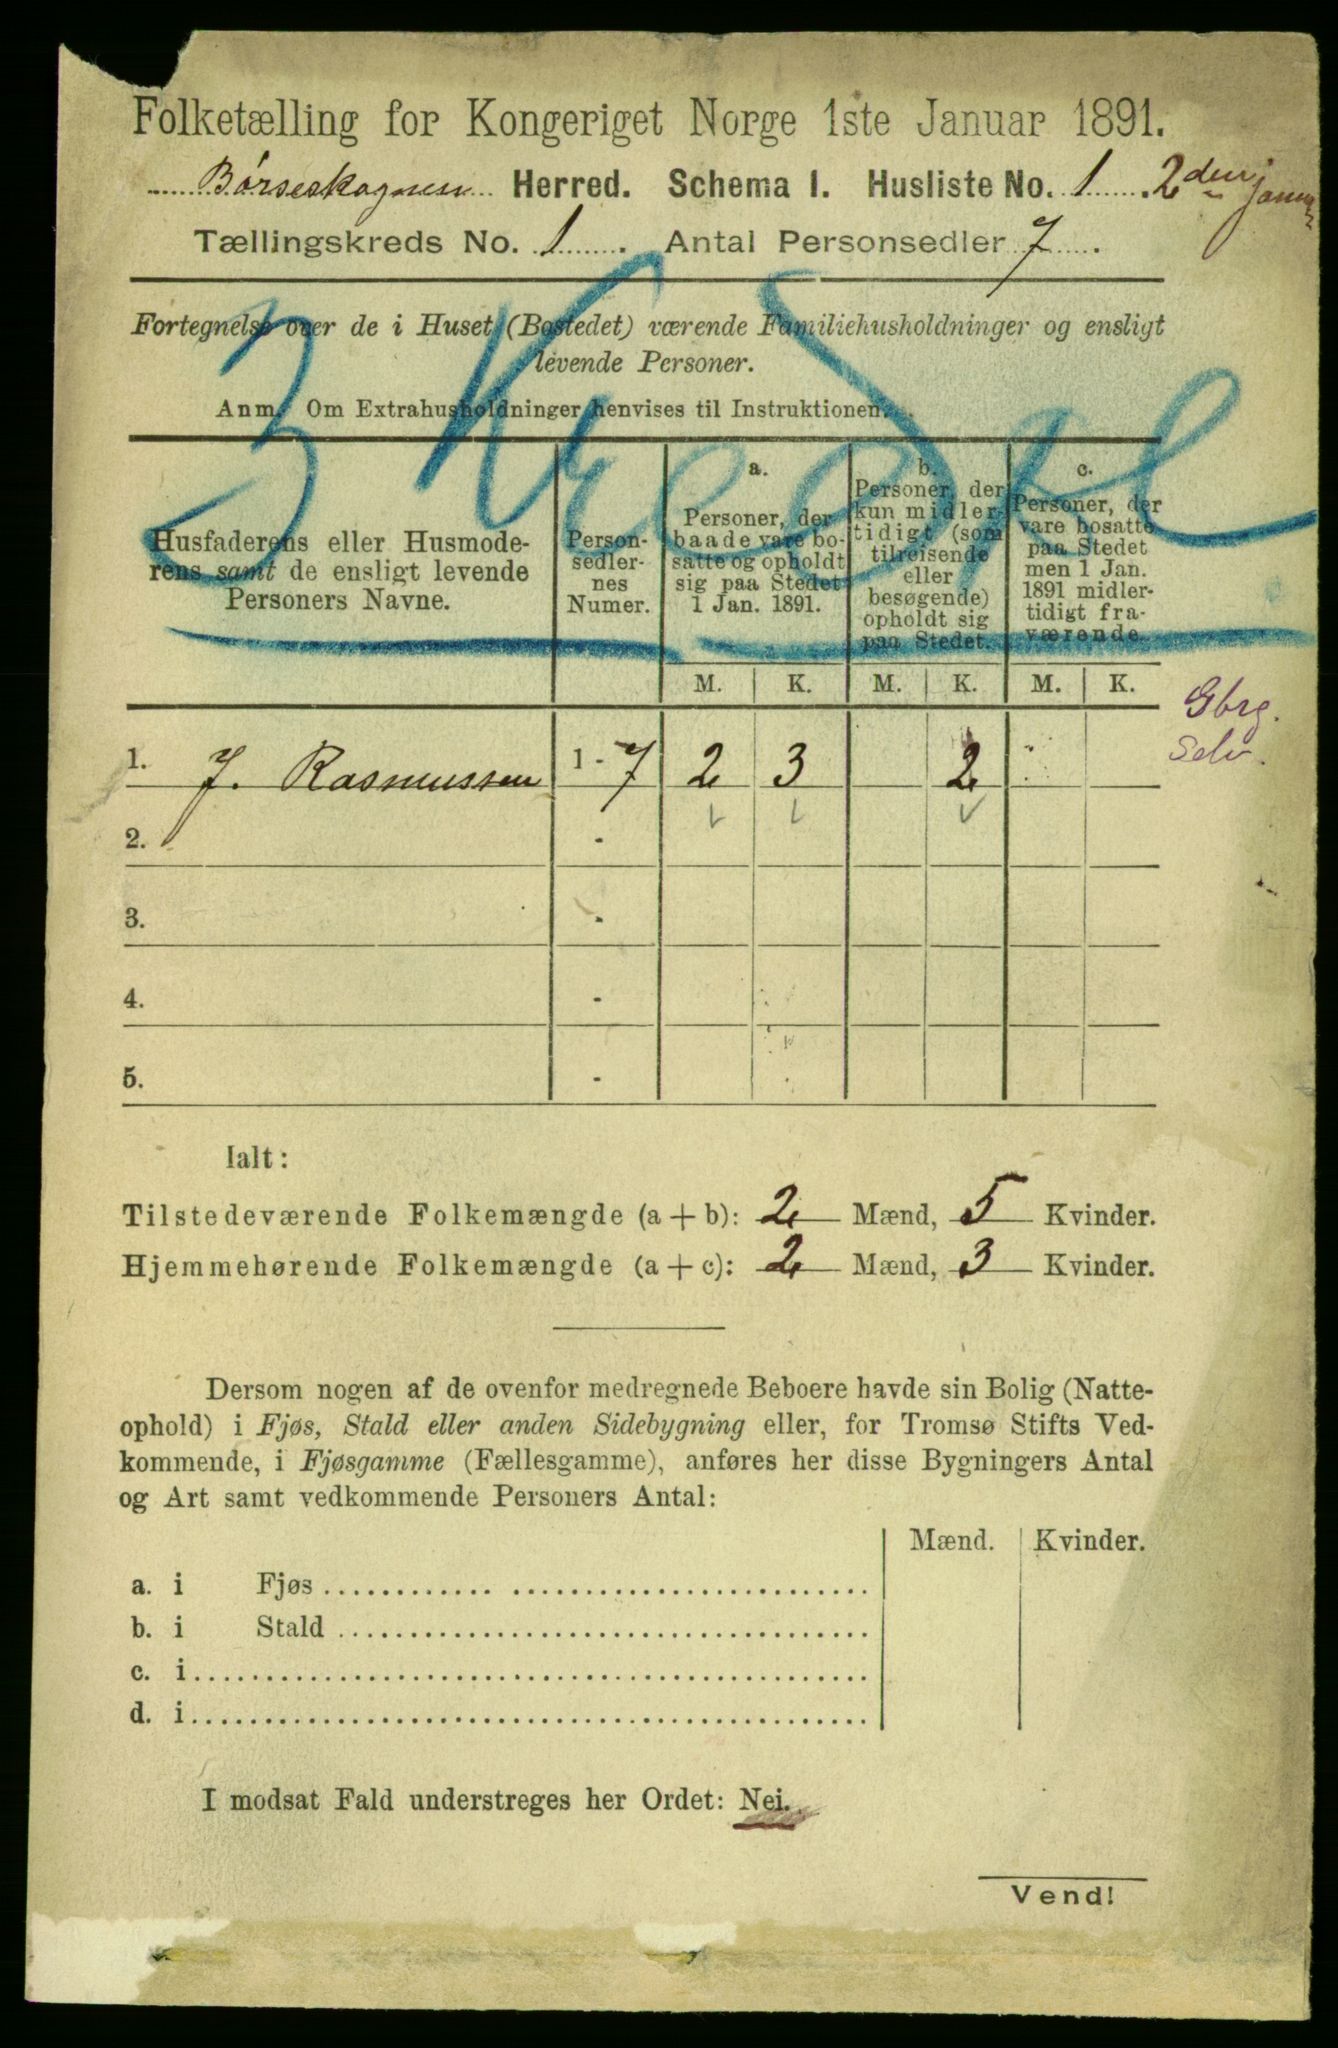 Folketælling for Kongeriget Norge 1ste Januar 1891.
Børseskognen Herred. Schema I. Husliste No. 1. 2den
Tællingskreds No. 1. Antal Personsedler 7.
Fortegnelse over de i Huset (Bostedet) værende Familiehusholdninger og ensligt
levende Personer.
Anm. Om Extrahusholdninger henvises til Instruktionen.
3
Husfaderens eller Husmode-
rens samt de ensligt levende
Personers Navne.
Person-
sedler-
nes
Numer.
a.
Personer, der
baade vare bo-
satte og opholdt
sig paa Stedet
1 Jan. 1891.
b.
Personer, der
kun midler-
tidigt (som
tilreisende
eller
besøgende)
opholdt sig
paa Stedet.
c.
Personer, der
vare bosatte
paa Stedet
men 1 Jan.
1891 midler-
tidigt fra-
værende.
M. K. M. K. M. K.
Gbrg.
Selv.
1. J. Rasmussen 1 - 7 2 3 2
2. -
3. -
4. -
5. -
Ialt:
Tilstedeværende Folkemængde (a + b): 2 Mænd, 5 Kvinder.
Hjemmehørende Folkemængde (a + c): 2 Mænd, 3 Kvinder.
Dersom nogen af de ovenfor medregnede Beboere havde sin Bolig (Natte-
ophold) i Fjøs, Stald eller anden Sidebygning eller, for Tromsø Stifts Ved-
kommende, i Fjøsgamme (Fællesgamme), anføres her disse Bygningers Antal
og Art samt vedkommende Personers Antal:
Mænd. Kvinder.
a. i Fjøs
b. i Stald
c. i
d. i
I modsat Fald understreges her Ordet: Nei.
Vend!